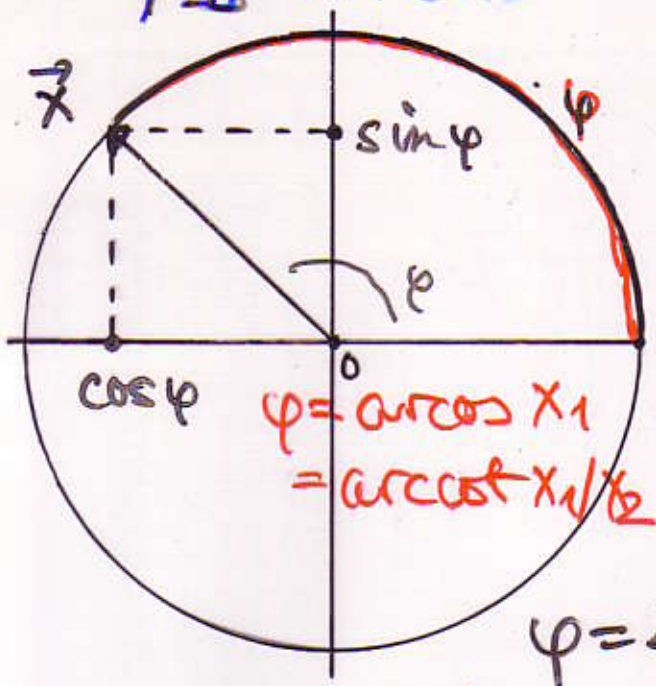 x⃗
φ
sin φ
φ
0
cos φ
φ = arcos x₁
= arccot x₁/x₂
φ =